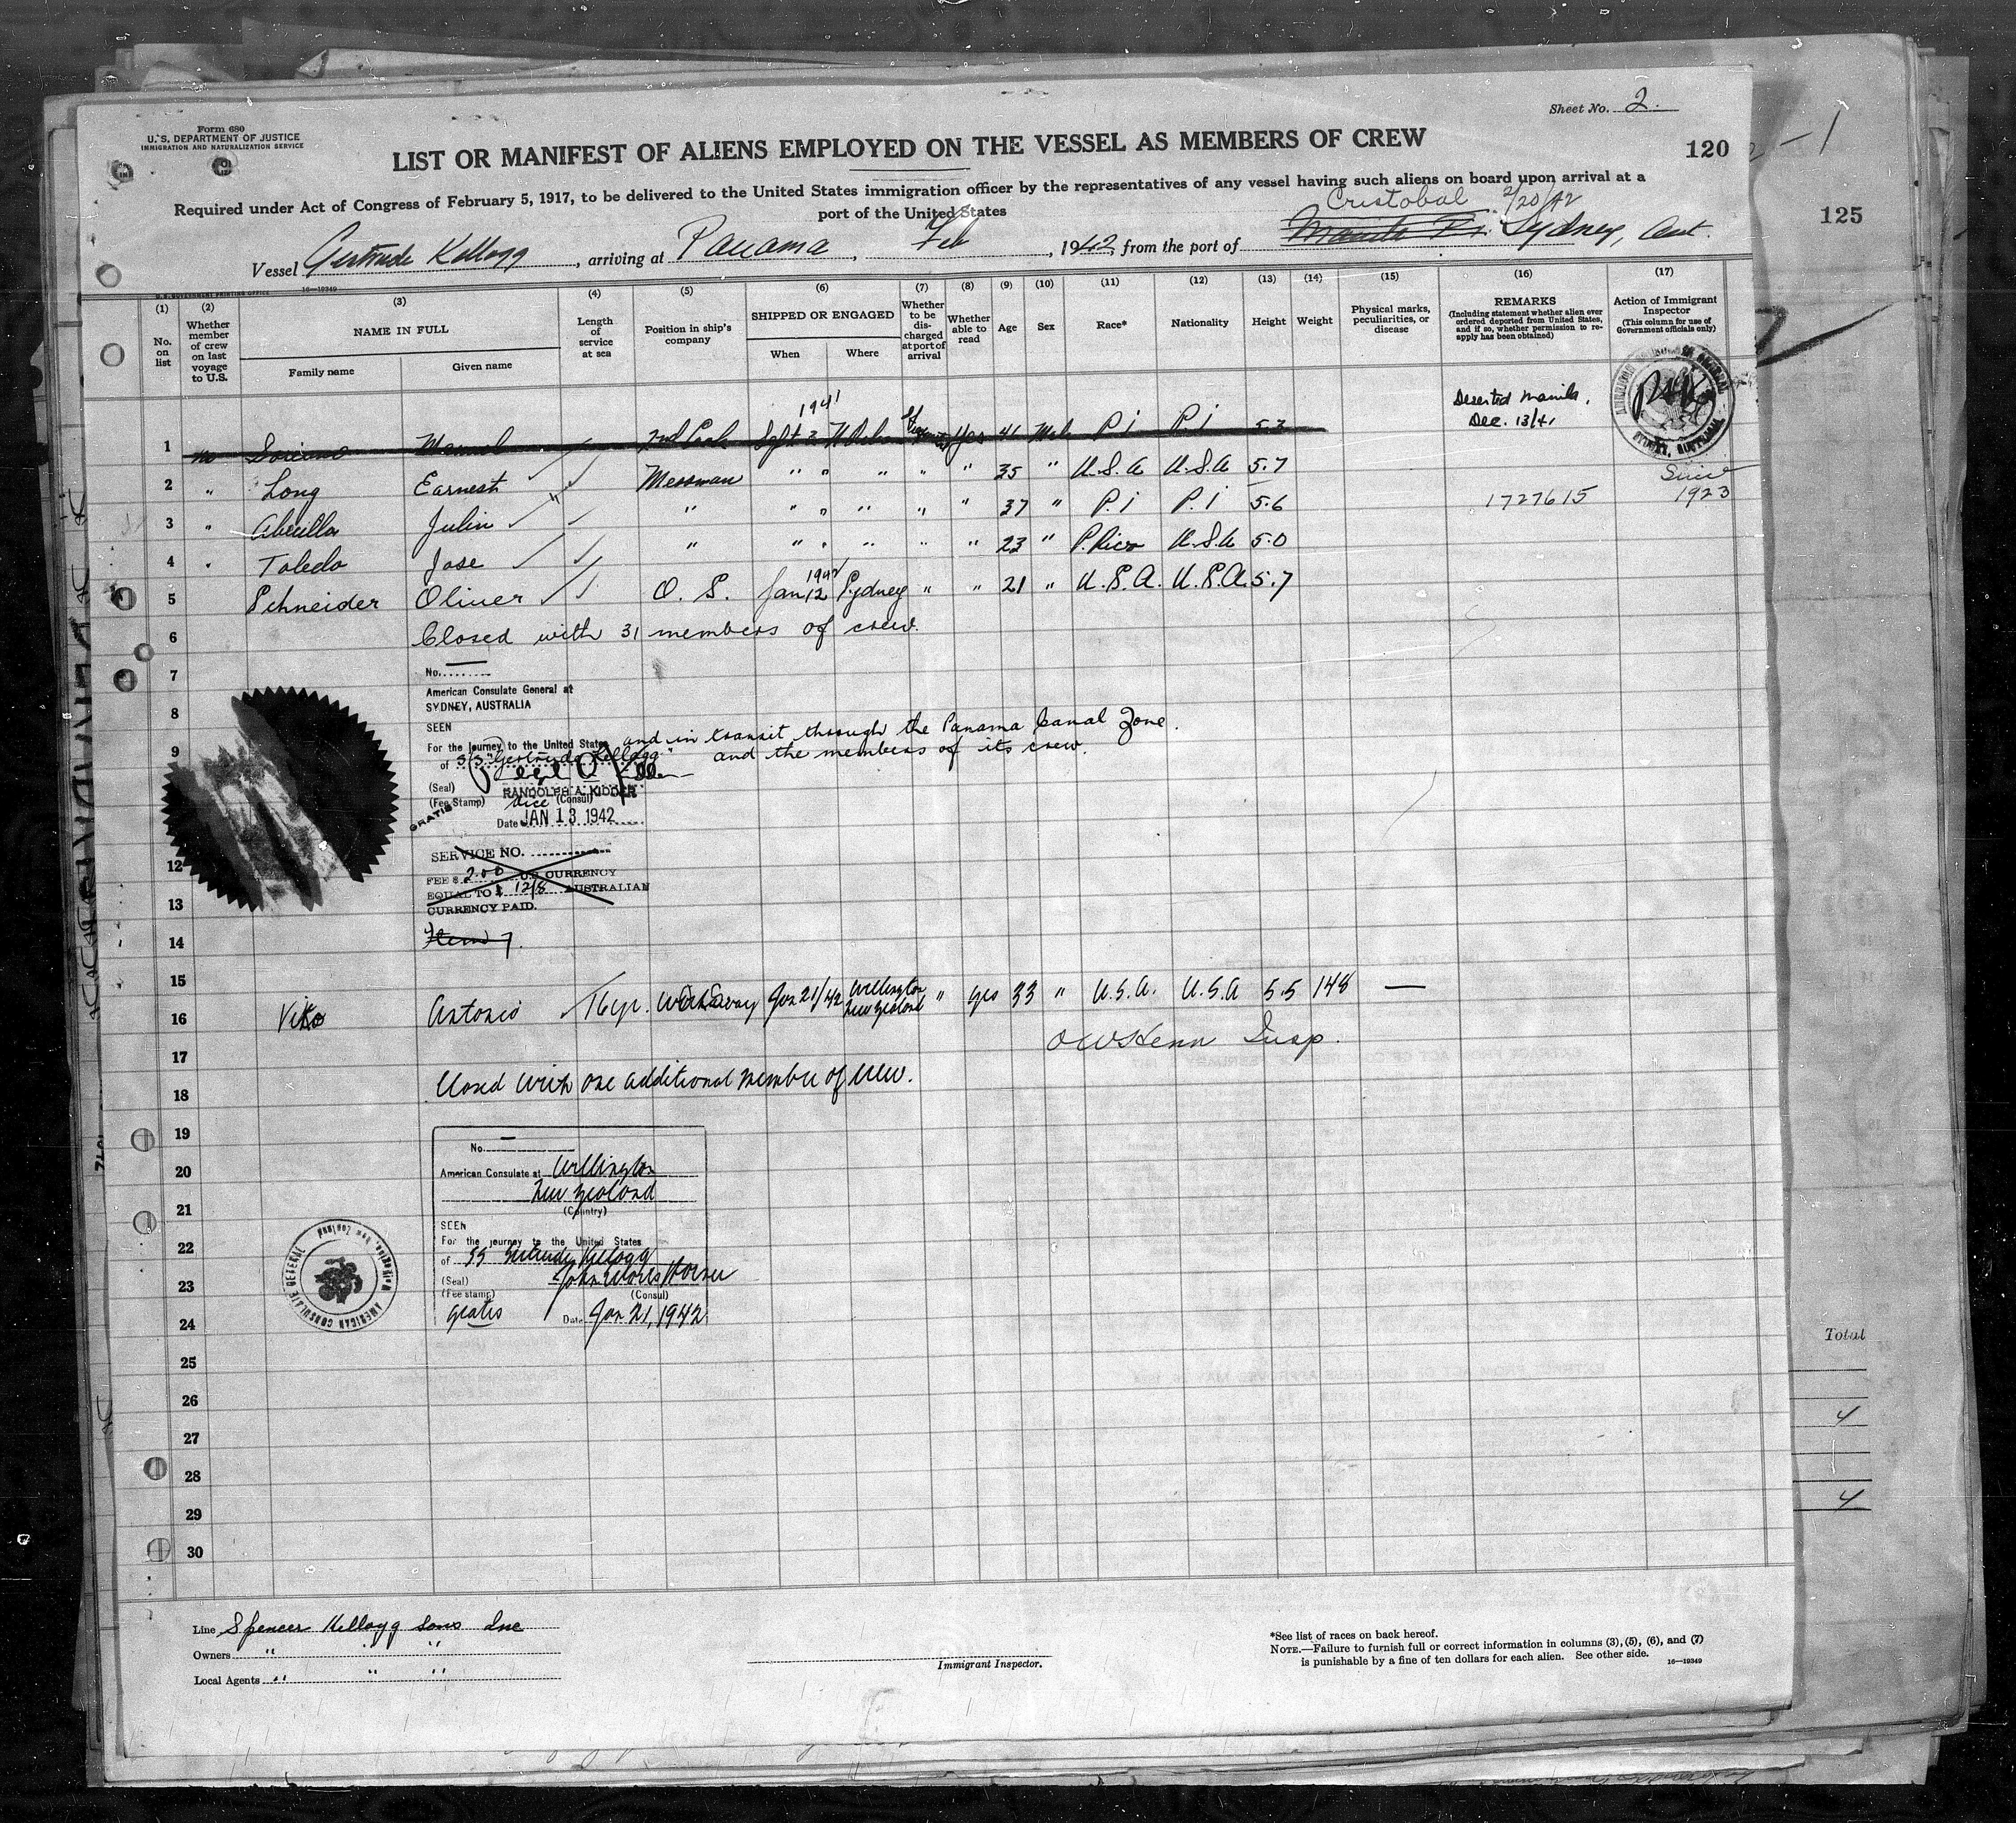 Sheet No. 2.
Form 680
U. S. DEPARTMENT OF JUSTICE
IMMIGRATION AND NATURALIZATION SERVICE
LIST OR MANIFEST OF ALIENS EMPLOYED ON THE VESSEL AS MEMBERS OF CREW
120
125
Required under Act of Congress of February 5, 1917, to be delivered to the United States immigration officer by the representatives of any vessel having such aliens on board upon arrival at a
port of the United States
Cristobal 2/20/42
Vessel Gertrude Kellogg, arriving at Panama, Feb, 1942, from the port of Manila P.I. Sydney, Aut.
16—19349
U. S. GOVERNMENT PRINTING OFFICE
(1) (2) (3) (4) (5) (6) (7) (8) (9) (10) (11) (12) (13) (14) (15) (16) (17)
No. on list
Whether member of crew on last voyage to U.S.
NAME IN FULL
Family name
Given name
Length of service at sea
Position in ship's company
SHIPPED OR ENGAGED
When
Where
Whether to be discharged at port of arrival
Whether able to read
Age
Sex
Race*
Nationality
Height
Weight
Physical marks, peculiarities, or disease
REMARKS
(Including statement whether alien ever ordered deported from United States, and if so, whether permission to reapply has been obtained)
Action of Immigrant Inspector
(This column for use of Government officials only)
Deserted Manila,
Dec. 13/41
1941
1 no Soriano Manuel 2nd Cook Sept 2 Yes 41 Male P.I P.I 5.3
2 " Long Earnest Messman " " " " " 35 " U.S.A U.S.A 5.7
Since
3 " Abeulla Julin " " " " " " 37 " P.I P.I 5.6 1727615 1923
4 " Toledo Jose " " " " " " 23 " P. Rico U.S.A 5.0
1942
5 Schneider Oliver O. S. Jan 12 Sydney " " 21 " U.S.A. U.S.A. 5.7
6 Closed with 31 members of crew.
7 No.
8 American Consulate General at
SYDNEY, AUSTRALIA
SEEN
9 For the journey to the United States and in transit through the Panama Canal Zone.
of S/S "Gertrude Kellogg" and the members of its crew.
(Seal)
RANDOLPH A. KIDDER
(Fee Stamp) Vice (Consul)
GRATIS
Date JAN 13 1942
12 SERVICE NO.
FEE $ 2.00 U.S. CURRENCY
EQUAL TO £ 12/8 AUSTRALIAN
13 CURRENCY PAID.
14 Item 7.
15
16 Antonio 16 yr. Workaway Jan 21/42 Wellington New Zealand " yes 33 " U.S.A. U.S.A 5.5 148 —
Insp.
17
18 Closed with one additional member of crew.
19
No.
20 American Consulate at Wellington
New Zealand
21 (Country)
SEEN
22 For the journey to the United States
of SS Gertrude Kellogg
23 (Seal)
(Fee stamp) (Consul)
24 gratis Date Jan 21, 1942
AMERICAN CONSULATE GENERAL
25
26
27
28
29
30
Total
4
4
Line Spencer Kellogg Sons Inc
Owners " " "
Local Agents " " "
Immigrant Inspector.
*See list of races on back hereof.
NOTE.—Failure to furnish full or correct information in columns (3), (5), (6), and (7)
is punishable by a fine of ten dollars for each alien. See other side.
16—19349